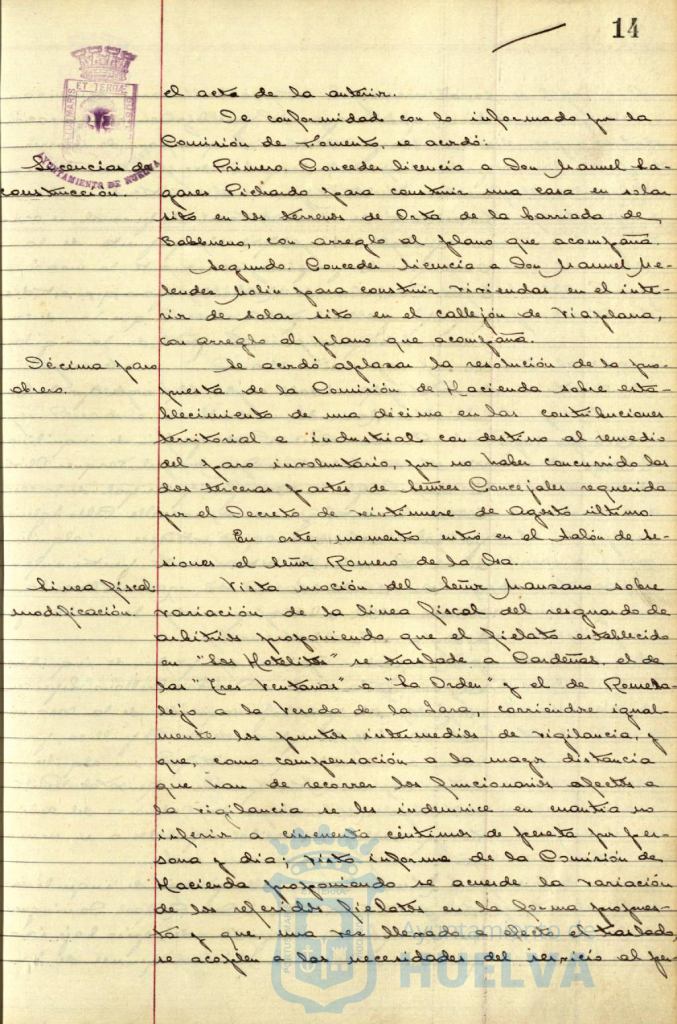 14
el acta de la anterior.
De conformidad con lo informado por la
Comisión de Fomento, se acordó:
Licencias de
construcción.
Primero. Conceder licencia a Don Manuel La-
gares Pichardo para construir una casa en solar
sito en los terrenos de Orta de la barriada de
con arreglo al plano que acompaña.
Segundo. Conceder licencia a Don Manuel Me-
lender Molin para construir viviendas en el inte-
rior de solar sito en el callejón de Viaplana,
con arreglo al plano que acompaña.
Décima paro
obrero.
Se acordó aplazar la resolución de la pro-
puesta de la Comisión de Hacienda sobre esta-
blecimiento de una décima en las contribuciones
territorial e industrial con destino al remedio
del paro involuntario, por no haber concurrido las
dos terceras partes de Señores Concejales requerida
por el Decreto de veintinueve de Agosto último.
En este momento entró en el Salón de Se-
siones el Señor Romero de la Osa.
Linea fiscal:
modificación.
Vista moción del Señor Manzano sobre
variación de la linea fiscal del resguardo de
arbitrios proponiendo que el fielato establecido
en "Los Hotelitos" se traslade a Cardeñas, el de
las "Tres Ventanas" a "La Orden" y el de Romera-
lejo a la Vereda de la Zara, corriendose igual-
mente los puntos intermedios de vigilancia, y
que, como compensación a la mayor distancia
que han de recorrer los funcionarios afectos a
la vigilancia se les indemnice en cuantía no
inferior a cincuenta céntimos de peseta por per-
sona y día; visto informe de la Comisión de
Hacienda proponiendo se acuerde la variación
de los referidos fielatos en la forma propues-
ta y que, una vez llevado a efecto el traslado,
se acoplen a las necesidades del servicio al per-
AYUNTAMIENTO DE HUELVA
Ayuntamiento de
HUELVA